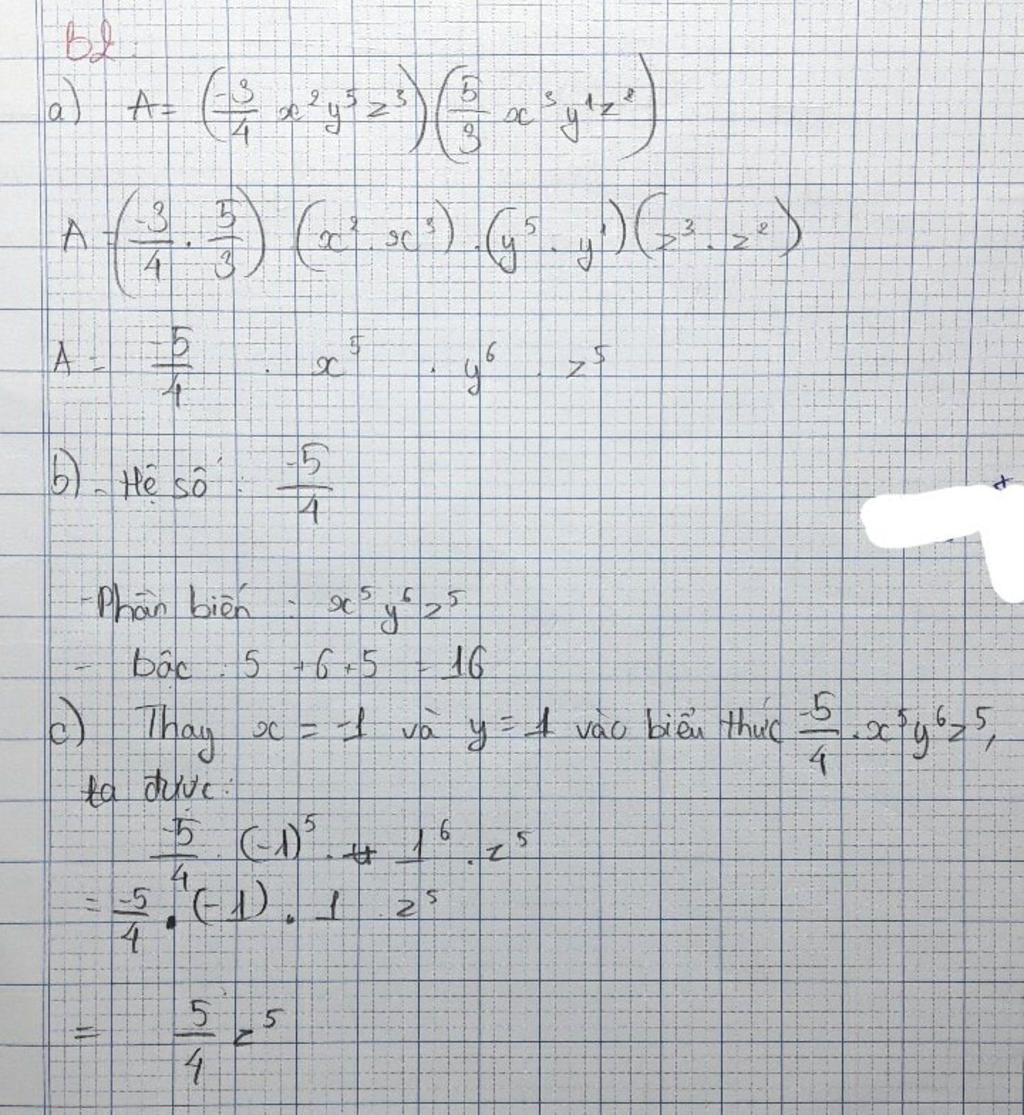 B2.
a) A = (-3/4 x² y⁵ z³) (5/3 x³ y¹ z²)
A = (-3/4 . 5/3) (x² . x³) . (y⁵ . y¹) (z³ . z²)
A = -5/4 . x⁵ . y⁶ . z⁵
b) - Hệ số : -5/4
- Phần biến : x⁵ y⁶ z⁵
- bậc : 5 + 6 + 5 = 16
c) Thay x = -1 và y = 1 vào biểu thức -5/4 . x⁵ y⁶ z⁵,
ta được:
-5/4 . (-1)⁵ . 1⁶ . z⁵
= -5/4 . (-1) . 1 z⁵
= 5/4 z⁵